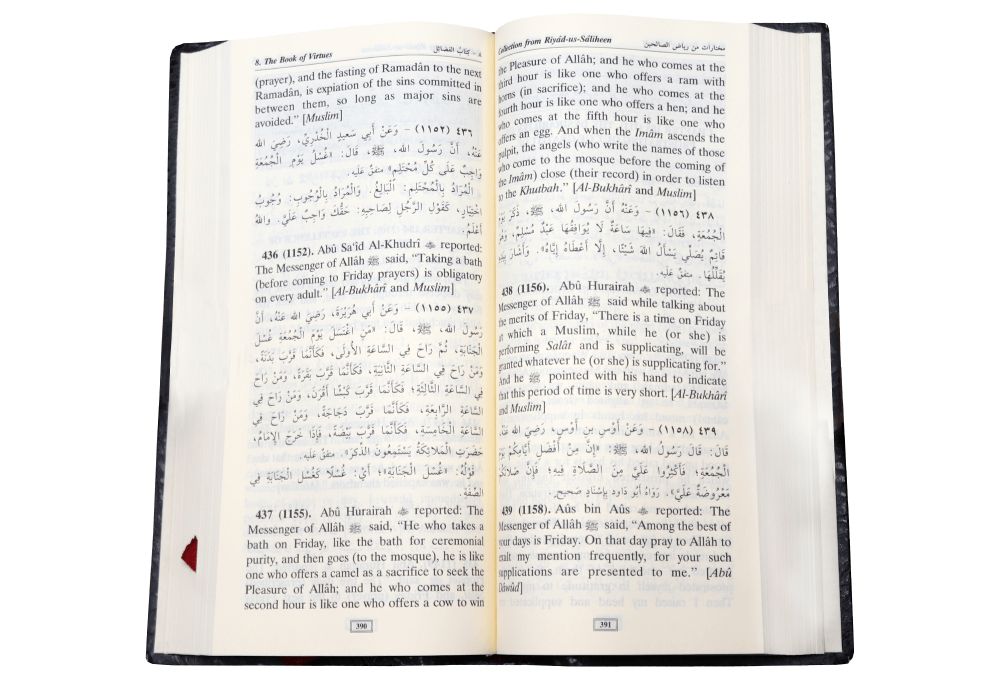 8. The Book of Virtues
٨ - كتاب الفضائل
(prayer), and the fasting of Ramadân to the next
Ramadân, is expiation of the sins committed in
between them, so long as major sins are
avoided.” [Muslim]
٤٣٦ (١١٥٢) - وَعَنْ أَبِي سَعِيدٍ الْخُدْرِيِّ، رَضِيَ الله
عَنْهُ، أَنَّ رَسُولَ الله، ﷺ، قَالَ: «غُسْلُ يَوْمِ الْجُمُعَةِ
وَاجِبٌ عَلَى كُلِّ مُحْتَلِمٍ» متفقٌ عَلَيه.
الْمُرَادُ بِالْمُحْتَلِمِ: الْبَالِغُ. وَالْمُرَادُ بِالْوُجُوبِ: وُجُوبُ
اخْتِيَارٍ، كَقَوْلِ الرَّجُلِ لِصَاحِبِهِ: حَقُّكَ وَاجِبٌ عَلَيَّ. واللهُ
أَعْلَمُ.
436 (1152). Abû Sa‘îd Al-Khudrî reported:
The Messenger of Allâh ﷺ said, “Taking a bath
(before coming to Friday prayers) is obligatory
on every adult.” [Al-Bukhârî and Muslim]
٤٣٧ (١١٥٥) - وَعَنْ أَبِي هُرَيْرَةَ، رَضِيَ الله عَنْهُ، أَنَّ
رَسُولَ الله، ﷺ، قَالَ: «مَنِ اغْتَسَلَ يَوْمَ الْجُمُعَةِ غُسْلَ
الْجَنَابَةِ، ثُمَّ رَاحَ فِي السَّاعَةِ الأُولَى، فَكَأَنَّمَا قَرَّبَ بَدَنَةً،
وَمَنْ رَاحَ فِي السَّاعَةِ الثَّانِيَةِ، فَكَأَنَّمَا قَرَّبَ بَقَرَةً، وَمَنْ رَاحَ
فِي السَّاعَةِ الثَّالِثَةِ؛ فَكَأَنَّمَا قَرَّبَ كَبْشًا أَقْرَنَ، وَمَنْ رَاحَ فِي
السَّاعَةِ الرَّابِعَةِ، فَكَأَنَّمَا قَرَّبَ دَجَاجَةً، وَمَنْ رَاحَ فِي
السَّاعَةِ الْخَامِسَةِ، فَكَأَنَّمَا قَرَّبَ بَيْضَةً، فَإِذَا خَرَجَ الإِمَامُ،
حَضَرَتِ الْمَلَائِكَةُ يَسْتَمِعُونَ الذِّكْرَ». متفقٌ عَلَيه.
قَوْلُهُ: «غُسْلَ الْجَنَابَةِ»؛ أَيْ: غُسْلًا كَغُسْلِ الْجَنَابَةِ فِي
الصِّفَةِ.
437 (1155). Abû Hurairah reported: The
Messenger of Allâh ﷺ said, “He who takes a
bath on Friday, like the bath for ceremonial
purity, and then goes (to the mosque), he is like
one who offers a camel as a sacrifice to seek the
Pleasure of Allâh; and he who comes at the
second hour is like one who offers a cow to win
390
Collection from Riyâd-us-Sâliheen
مختارات من رياض الصالحين
the Pleasure of Allâh; and he who comes at the
third hour is like one who offers a ram with
horns (in sacrifice); and he who comes at the
fourth hour is like one who offers a hen; and he
who comes at the fifth hour is like one who
offers an egg. And when the Imâm ascends the
pulpit, the angels (who write the names of those
who come to the mosque before the coming of
the Imâm) close (their record) in order to listen
to the Khutbah.” [Al-Bukhârî and Muslim]
٤٣٨ (١١٥٦) - وَعَنْهُ أَنَّ رَسُولَ الله، ﷺ، ذَكَرَ يَوْمَ
الْجُمُعَةِ، فَقَالَ: «فِيهَا سَاعَةٌ لَا يُوَافِقُهَا عَبْدٌ مُسْلِمٌ، وَهُوَ
قَائِمٌ يُصَلِّي يَسْأَلُ اللهَ شَيْئًا، إِلَّا أَعْطَاهُ إِيَّاهُ». وَأَشَارَ بِيَدِهِ
يُقَلِّلُهَا. متفقٌ عَلَيه.
438 (1156). Abû Hurairah reported: The
Messenger of Allâh ﷺ said while talking about
the merits of Friday, “There is a time on Friday
at which a Muslim, while he (or she) is
performing Salât and is supplicating, will be
granted whatever he (or she) is supplicating for.”
And he ﷺ pointed with his hand to indicate
that this period of time is very short. [Al-Bukhârî
and Muslim]
٤٣٩ (١١٥٨) - وَعَنْ أَوْسِ بنِ أَوْسٍ، رَضِيَ الله عَنْهُ،
قَالَ: قَالَ رَسُولُ الله، ﷺ: «إِنَّ مِنْ أَفْضَلِ أَيَّامِكُمْ يَوْمَ
الْجُمُعَةِ؛ فَأَكْثِرُوا عَلَيَّ مِنَ الصَّلَاةِ فِيهِ؛ فَإِنَّ صَلَاتَكُمْ
مَعْرُوضَةٌ عَلَيَّ». رَوَاهُ أَبُو دَاود بِإِسْنَادٍ صَحِيحٍ.
439 (1158). Aûs bin Aûs reported: The
Messenger of Allâh ﷺ said, “Among the best of
your days is Friday. On that day pray to Allâh to
exalt my mention frequently, for your such
supplications are presented to me.” [Abû
Dâwûd]
391